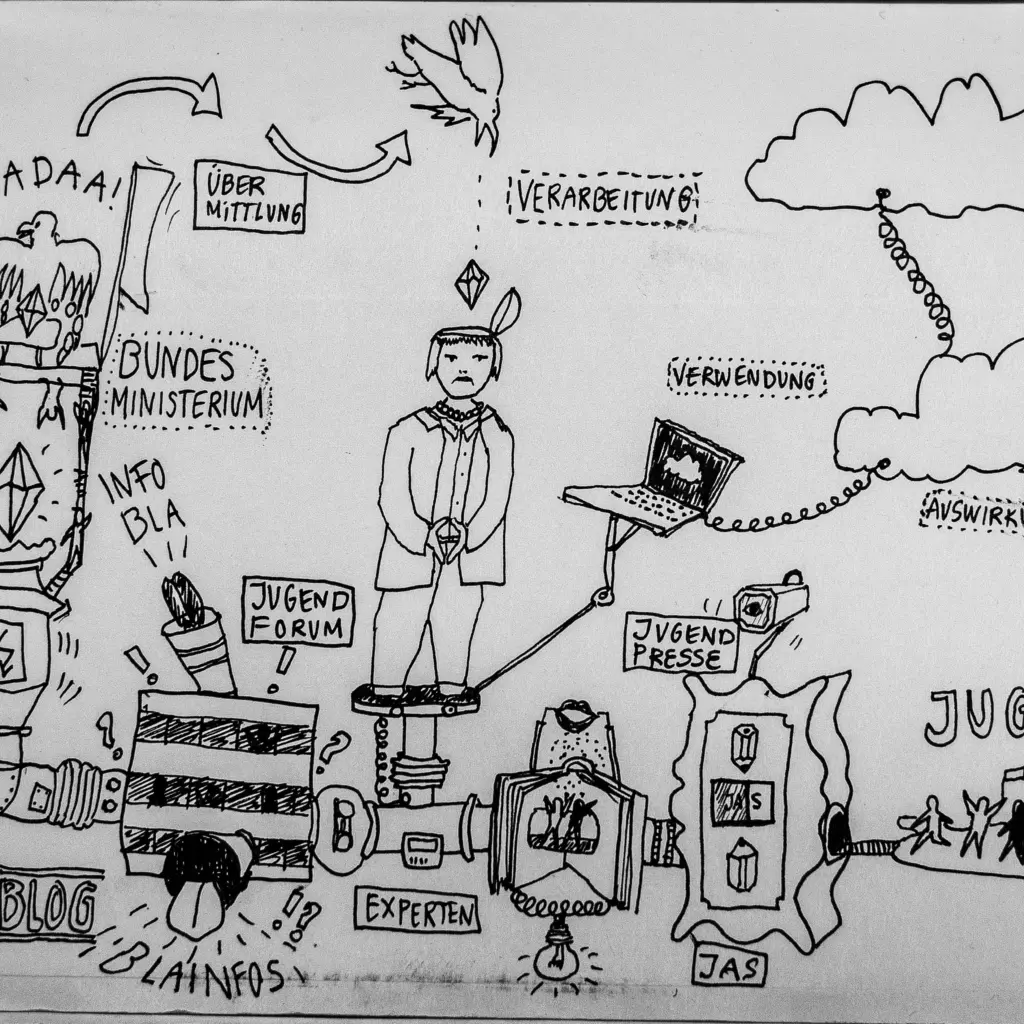 ADAA!
ÜBER
MITTLUNG
VERARBEITUNG
BUNDES
MINISTERIUM
VERWENDUNG
INFO
BLA
AUSWIRKU
JUGEND
FORUM
JUGEND
PRESSE
JUG
JAS
BLOG
EXPERTEN
BLAINFOS
JAS